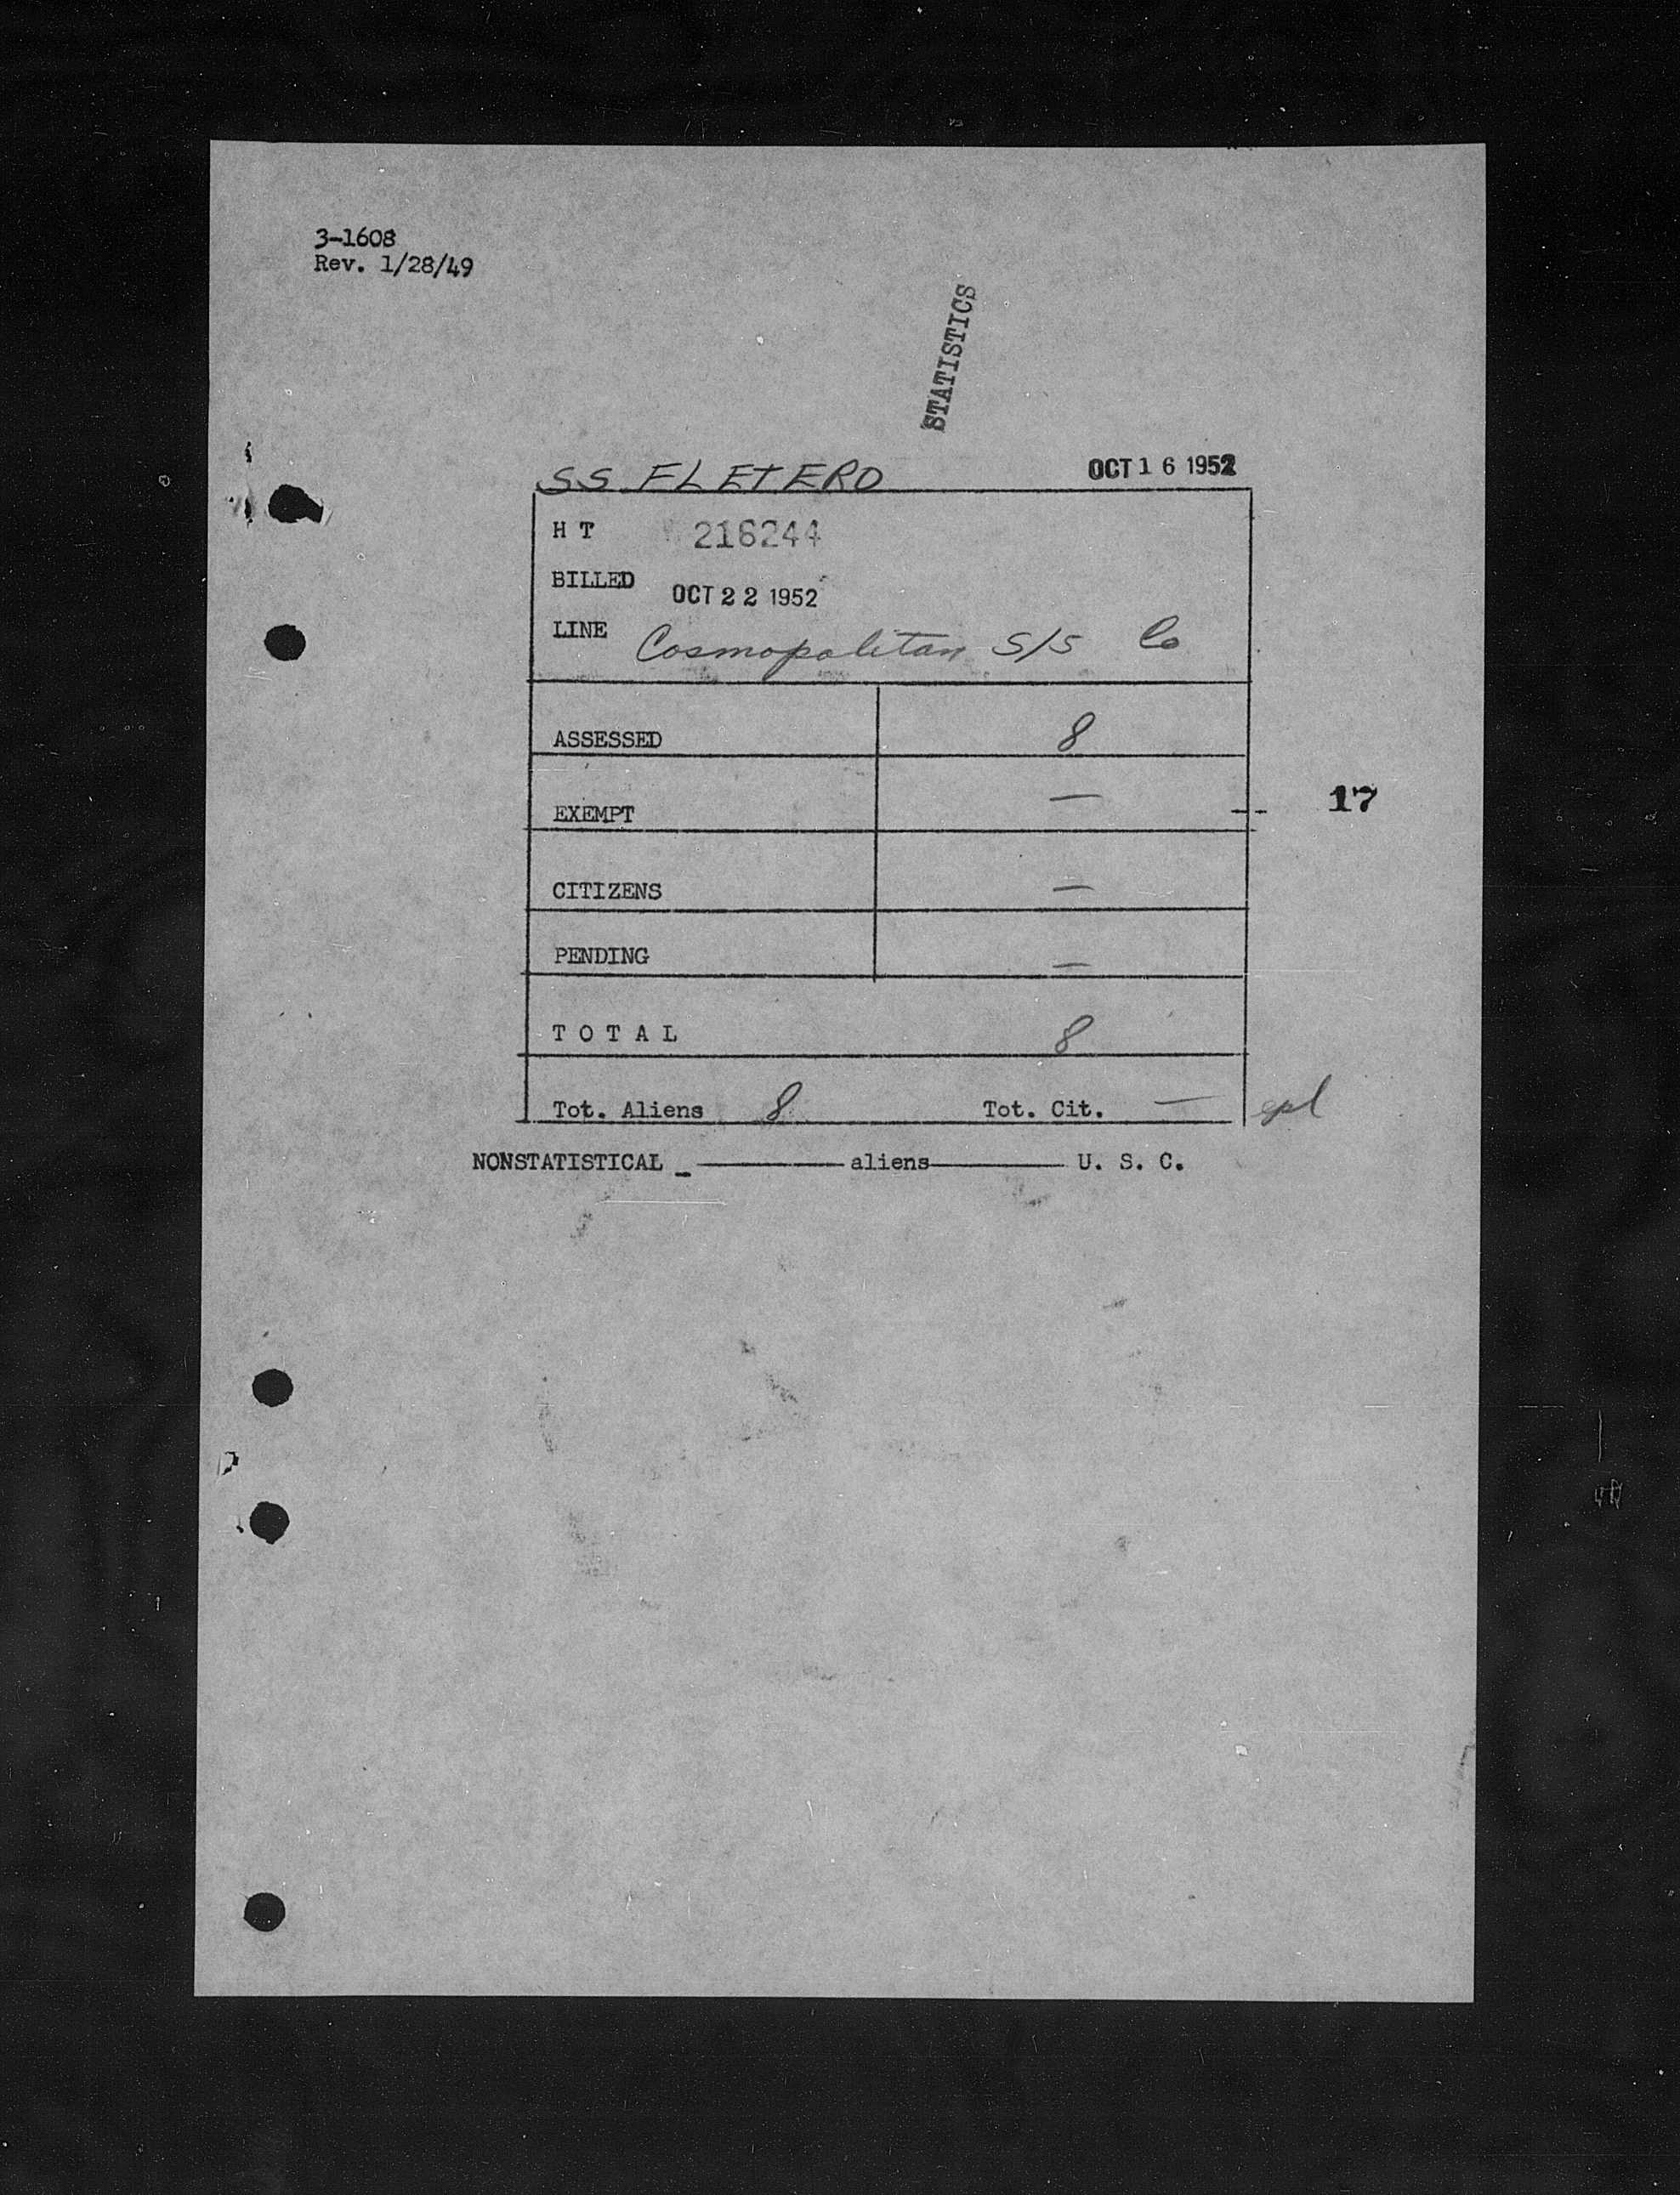 3-1608
Rev. 1/28/49
STATISTICS
SS FLETERO
OCT 16 1952
H T 216244
BILLED OCT 22 1952
LINE Cosmopolitan S/S Co
ASSESSED 8
EXEMPT —
17
CITIZENS —
PENDING —
T O T A L 8
Tot. Aliens 8 Tot. Cit. —
NONSTATISTICAL _ ——— aliens ——— U. S. C.